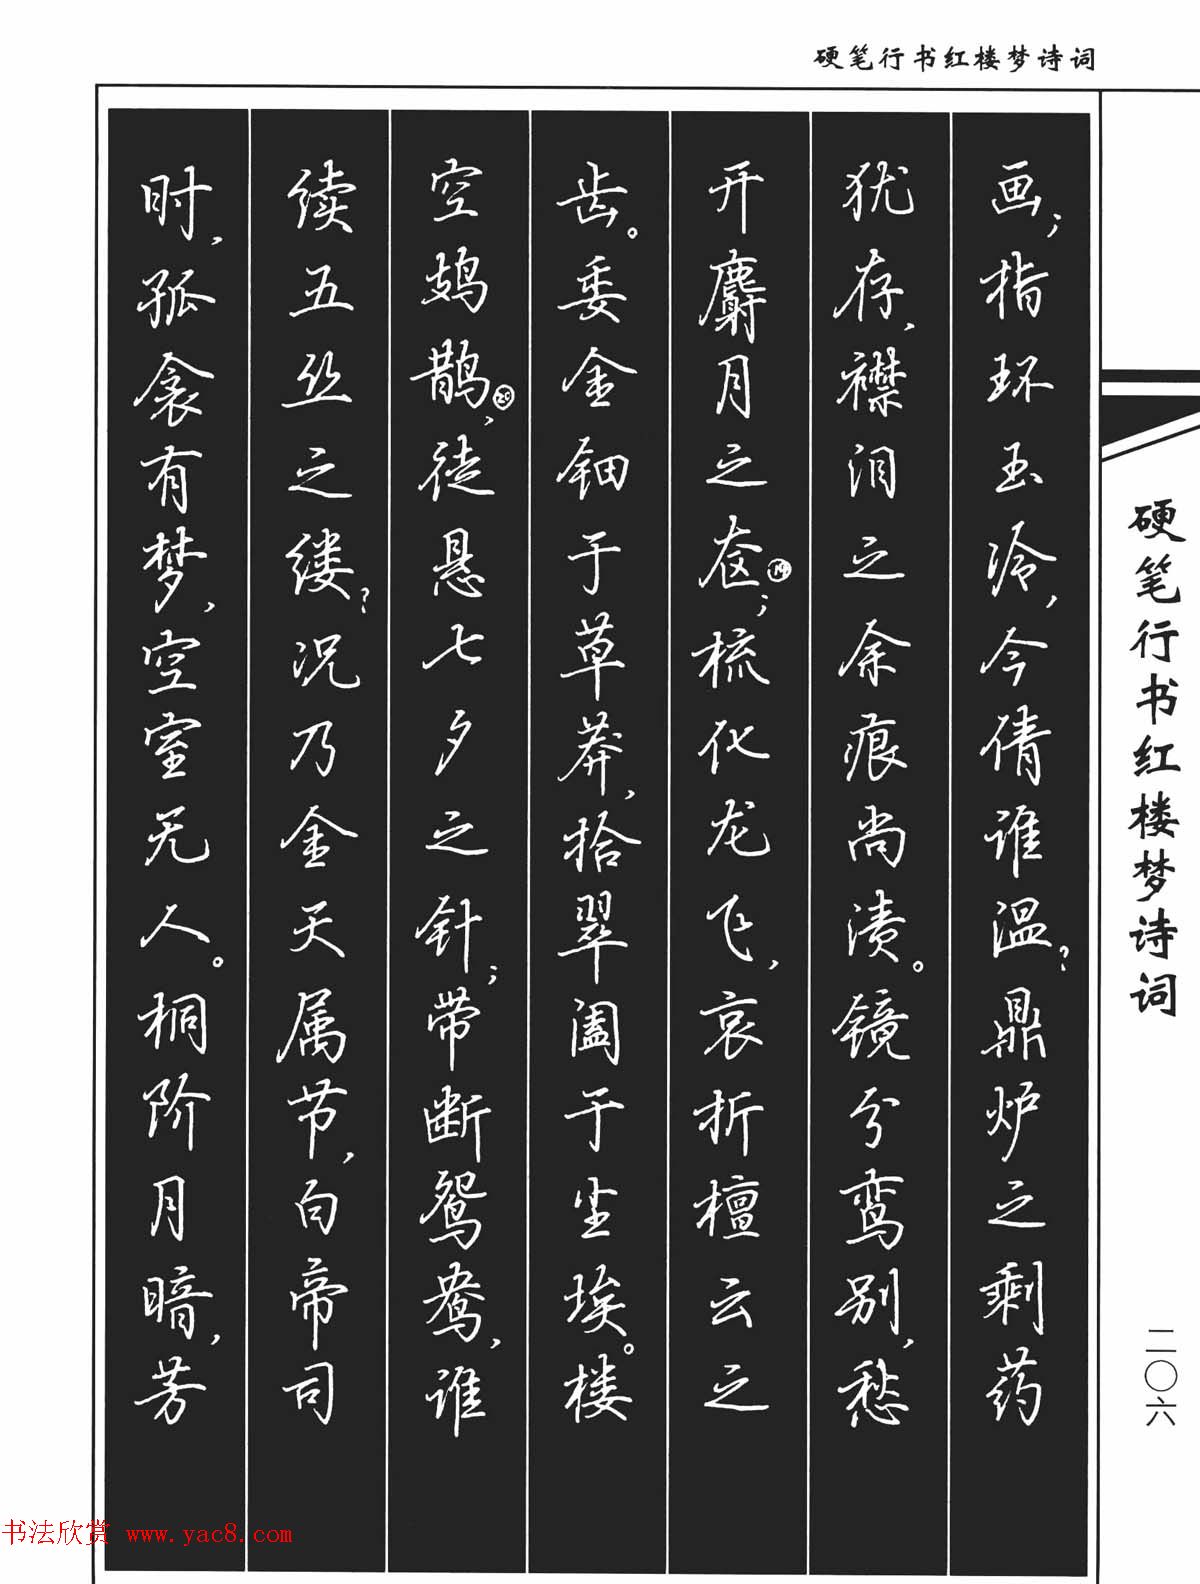 硬笔行书红楼梦诗词
画；指环玉冷，今倩谁温？鼎炉之剩药
犹存，襟泪之余痕尚渍。镜分鸾别，愁
开麝月之奁⑲；梳化龙飞，哀折檀云之
齿。委金钿于草莽，拾翠盍于尘埃。楼
空鳷鹊⑳，徒悬七夕之针；带断鸳鸯，谁
续五丝之缕？况乃金天属节，白帝司
时，孤衾有梦，空室无人。桐阶月暗，芳
硬笔行书红楼梦诗词
二〇六
书法欣赏 www.yac8.com